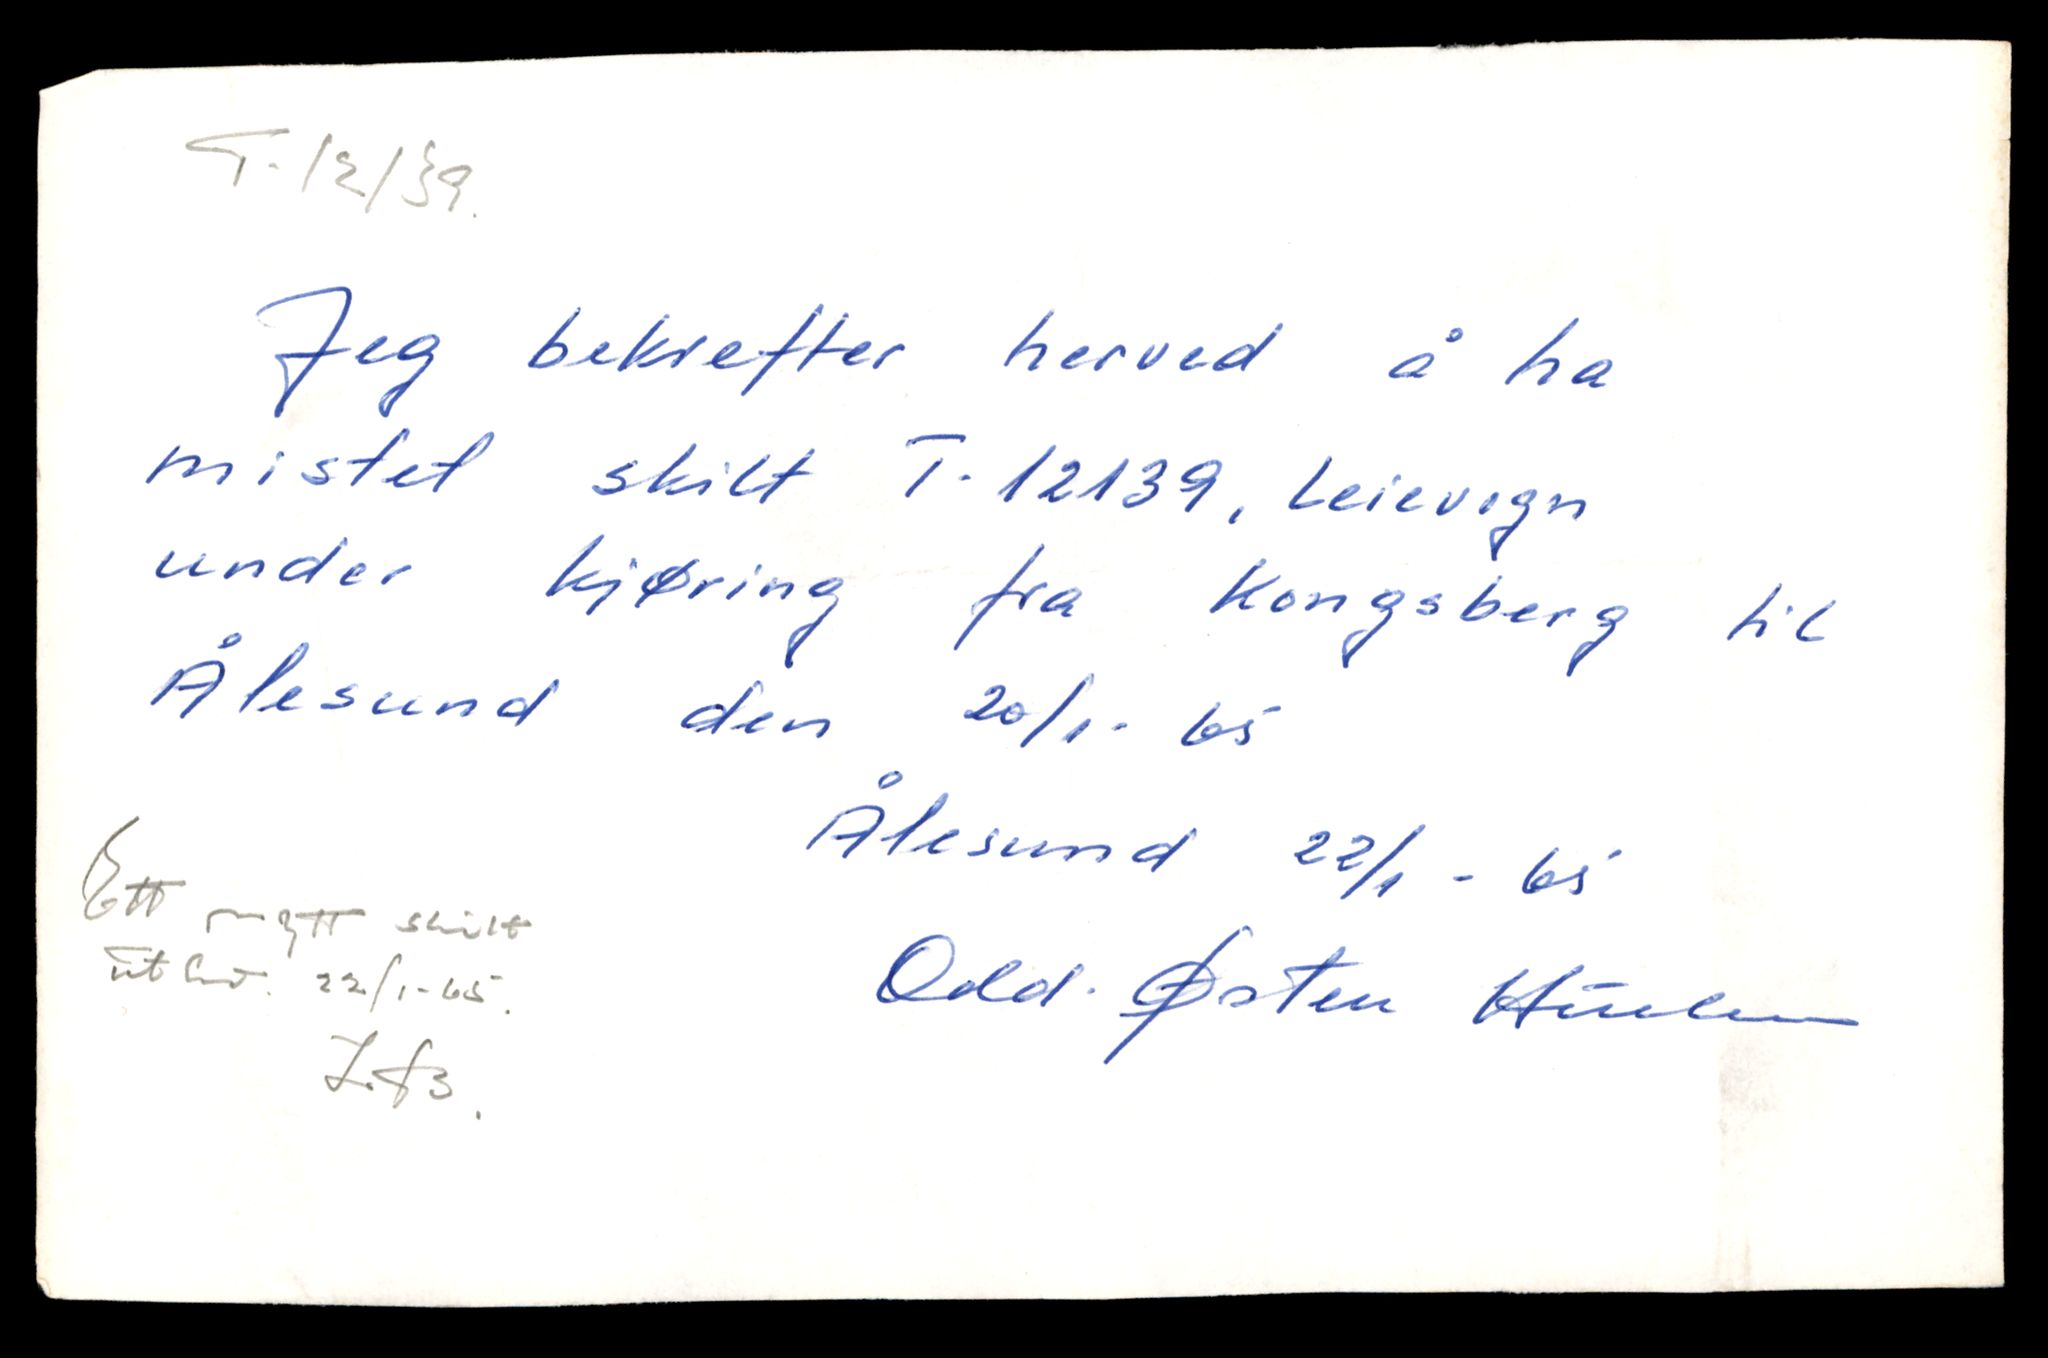 T-12139.
Jeg bekrefter herved å ha
mistet skilt T-12139, Leievogn
under kjøring fra Kongsberg til
Ålesund den 20/1- 65
Ålesund 22/1 - 65
Odd. Østen
Ett nytt skilt
utlev. 22/1-65.